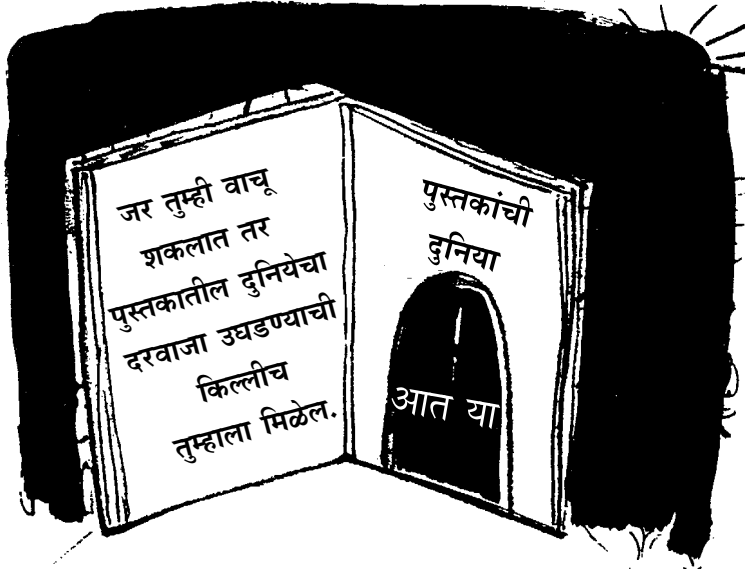 जर तुम्ही वाचू
शकलात तर
पुस्तकातील दुनियेचा
दरवाजा उघडण्याची
किल्लीच
तुम्हाला मिळेल.
पुस्तकांची
दुनिया
आत या